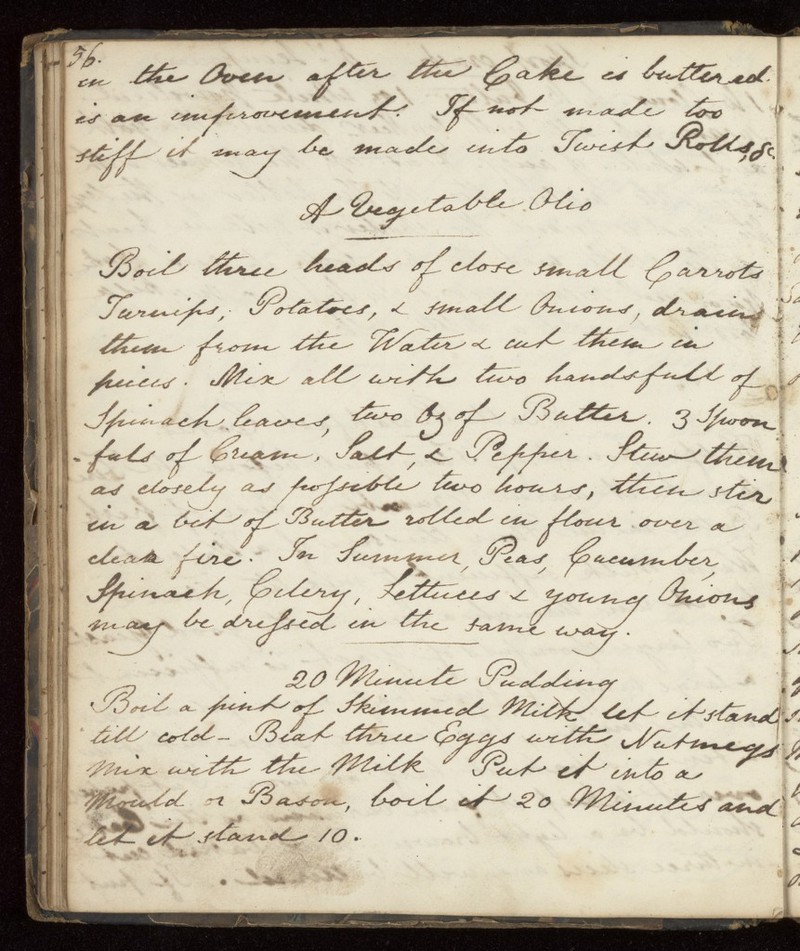 56.
in the Oven after the Cake is buttered
is an improvement. If not made too
stiff it may be made into Twist Rolls, &c.
A Vegetable Olio
Boil three heads of close small Carrots
Turnips, Potatoes, & small Onions, drain
them from the Water & cut them in
peices. Mix all with two handsfull of
Spinach leaves, two Oz of Butter. 3 Spoon
-fuls of Cream, Salt, & Pepper. Stew them
as closely as possible two hours, then stir
in a bit of Butter rolled in flour over a
clear fire. In Summer, Peas, Cucumber,
Spinach, Celery, Lettuces & young Onions
may be dressed in the same way.
20 Minute Pudding
Boil a pint of Skimmed Milk let it stand
till cold - Beat three Eggs with Nutmegs
Mix with the Milk Put it into a
Mould or Bason, boil it 20 Minutes and
let it stand 10.